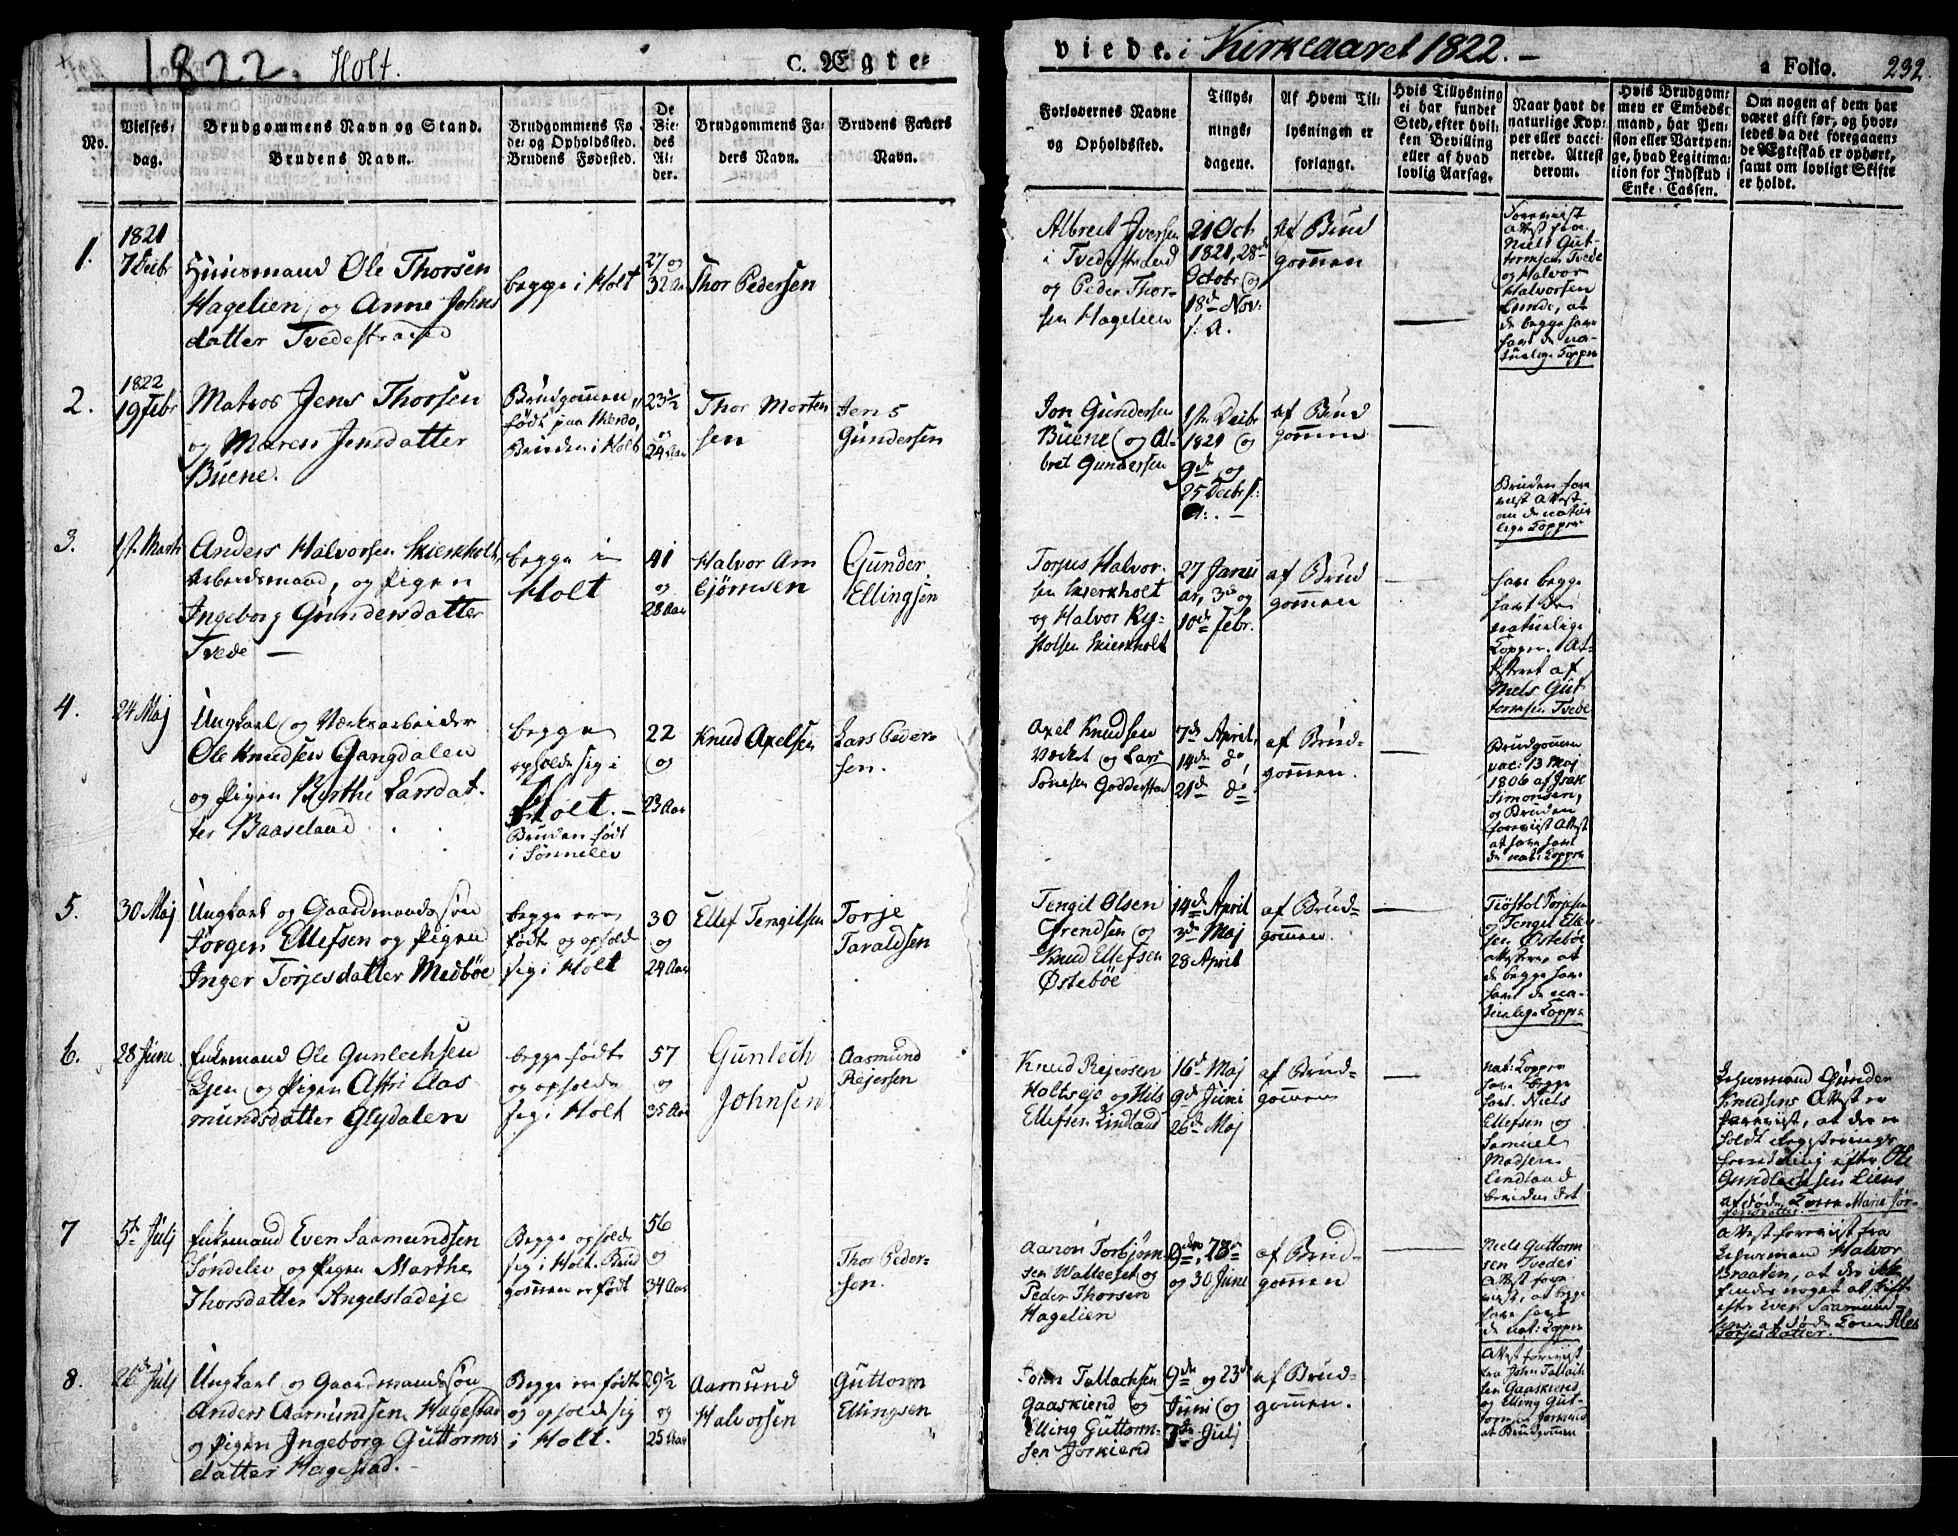 1822. Holt.
C. Ægte-
viede. i Kirkeaaret 1822. —
a Folio. 232.
No.
Vielses-
dag.
Brudgommens Navn og Stand.
Brudens Navn.
Brudgommens Fø-
de- og Opholdssted.
Brudens Fødested.
De
Vie-
des
Al-
der.
Brudgommens Fa-
ders Navn.
Brudens Faders
Navn.
Forlovernes Navne
og Opholdssted.
Tillys-
nings-
dagene.
Af Hvem Til-
lysningen er
forlangt.
Hvis Tillysning
ei har fundet
Sted, efter hvil-
ken Bevilling
eller af hvad
lovlig Aarsag.
Naar havt de
naturlige Kop-
per eller vacci-
nerede. Attest
derom.
Hvis Brudgom-
men er Embeds-
mand, har Pen-
sion eller Vartpen-
ge, hvad Legitima-
tion for Indskud i
Enke-Cassen.
Om nogen af dem har
været gift før, og hvor-
ledes da det foregaaen-
de Ægteskab er ophørt,
samt om lovligt Skifte
er holdt.
1.
1821
7 Decbr
Huusmand Ole Thorsen
Hagelien og Anne Johns
datter Tvedestrand
begge i Holt
27 og
32 Aar
Thor Pedersen
Albret Iversen
i Tvedestrand
og Peder Thor-
sen Hagelien
21 Oct
1821, 28de
Octobr og
18de Nov:
s: A.
Af Brud
gommen
Foreviist
Attest fra
Niels Gut-
tormsen Tvede
og Halvor
Halvorsen
Lunde, at
de begge have
havt de na-
turlige Kopper
2.
1822
19 Febr
Matros Jens Thorsen
og Maren Jensdatter
Buene.
Brudgommen
født paa Merdø,
Bruden i Holt
23½
og
24 Aar
Thor Morten
sen
Jens
Gundersen
Jon Gundersen
Buene og Al-
bret Gundersen
1ste Decbr
1821 og
9de og
25 Decbr s:
A: . —
af Brud
gommen
Bruden fore
viist Attest
om de natur
lige Kopper
3.
1ste Marts
Anders Halvorsen Skierkholt,
Arbeidsmand, og Pigen
Ingeborg Gundersdatter
Tvede —
begge i
Holt
41
og
28 Aar
Halvor Am
bjørnsen
Gunder
Ellingsen
Torjus Halvor-
sen Skierkholt
og Halvor Ky-
stolsen Skierkholt
27 Janu
ar, 3de og
10de Febr.
af Brud
gommen
have begge
havt de
naturlige
Kopper. At-
testeret af
Niels Gut
tormsen Tvede
4.
24 Maj
Ungkarl og Værksarbeider
Ole Knudsen Gangdalen
og Pigen Berthe Larsdat-
ter Baaseland
begge
opholde sig i
Holt. —
Bruden født
i Sønnelev
22
og
23 Aar
Knud Axelsen
Lars Peder-
sen.
Axel Knudsen
Værket og Lars
Tønesen Godderstad
7de April,
14de do,
21de do
af Brud-
gommen.
Brudgommen
vac: 13 Maj
1806 af Isak
Simonsen,
og Bruden
foreviist Attest
at have havt
de nat: Kopper
5.
30 Maj
Ungkarl og Gaardmandssøn
Jørgen Ellefsen og Pigen
Inger Torjesdatter Medbøe
begge ere
født og opholde
sig i Holt
30
og
24 Aar
Ellef Tengilsen
Torje
Taraldsen
Tengil Olsen
Grendsen og
Knud Ellefsen
Østebøe
14de April
3de Maj
28 April
af Brud-
gommen.
Tiøstol Torjesen
og Tengel Ellef-
sen Østebøe
attestere, at
de begge have
havt de na-
turlige Kopper
6.
28 Juni
Enkemand Ole Gunlechsen
Lien og Pigen Astri Aas
mundsdatter Glydalen
begge født
og opholde
sig i Holt
57
og
35 Aar
Gunlech
Johnsen
Aasmund
Rejersen
Knud Rejersen
Holtseje og Nils
Ellefsen Lindland
16de Maj
9de Juni
26de Maj
af Brud-
gommen
nat: Kopper
have begge
havt. Niels
Ellefsen og
Samuel
Madsen
Lindland
bevidne det
Lehnsmand Gunder
Knudsens Attest er
foreviist, at der er
holdt Registrerings
forretning efter Ole
Gundlechsen Liens
afdøde Kone Marie Jør-
gensdatter.
7
5te Julj
Enkemand Even Saamundsen
Søndelev og Pigen Marthe
Thorsdatter Angelstadeje
Begge opholde
sig i Holt. Brud
gommen er født
56
og
34 Aar
Thor Peder-
sen.
Aaron Torbjørn-
sen Walleeset og
Peder Thorsen
Hagelien
9de, 23de
og 30 June
af Brud-
gommen
Niels Guttorm
sen Tvedes
Attest fore
viist, at begge
have havt
de nat: Kopper
Attest foreviist fra
Lehnsmand Halvor
Braaten, at der ikke
findes noget at skift
efter Even Saamund-
sens afdøde Kone Ales
Torjesdatter.
8.
26de Julj
Ungkarl og Gaardmandssøn
Anders Aamundsen Hagestad
og Pigen Ingeborg Guttorms
datter Hagestad. —
Begge ere født
og opholde sig
i Holt.
29½
og
25 Aar
Aamund
Halvorsen
Guttorm
Ellingsen
John Tallachsen
Gaaskierd og
Elling Guttorm-
sen Jorkierd
9de og 23de
Juni og
7de Julj
af Brud-
gommen.
Attest foreviist
fra John Tallach
sen Gaaskierd
og Elling Gut-
tormsen Jorkierd
at Brudgommen